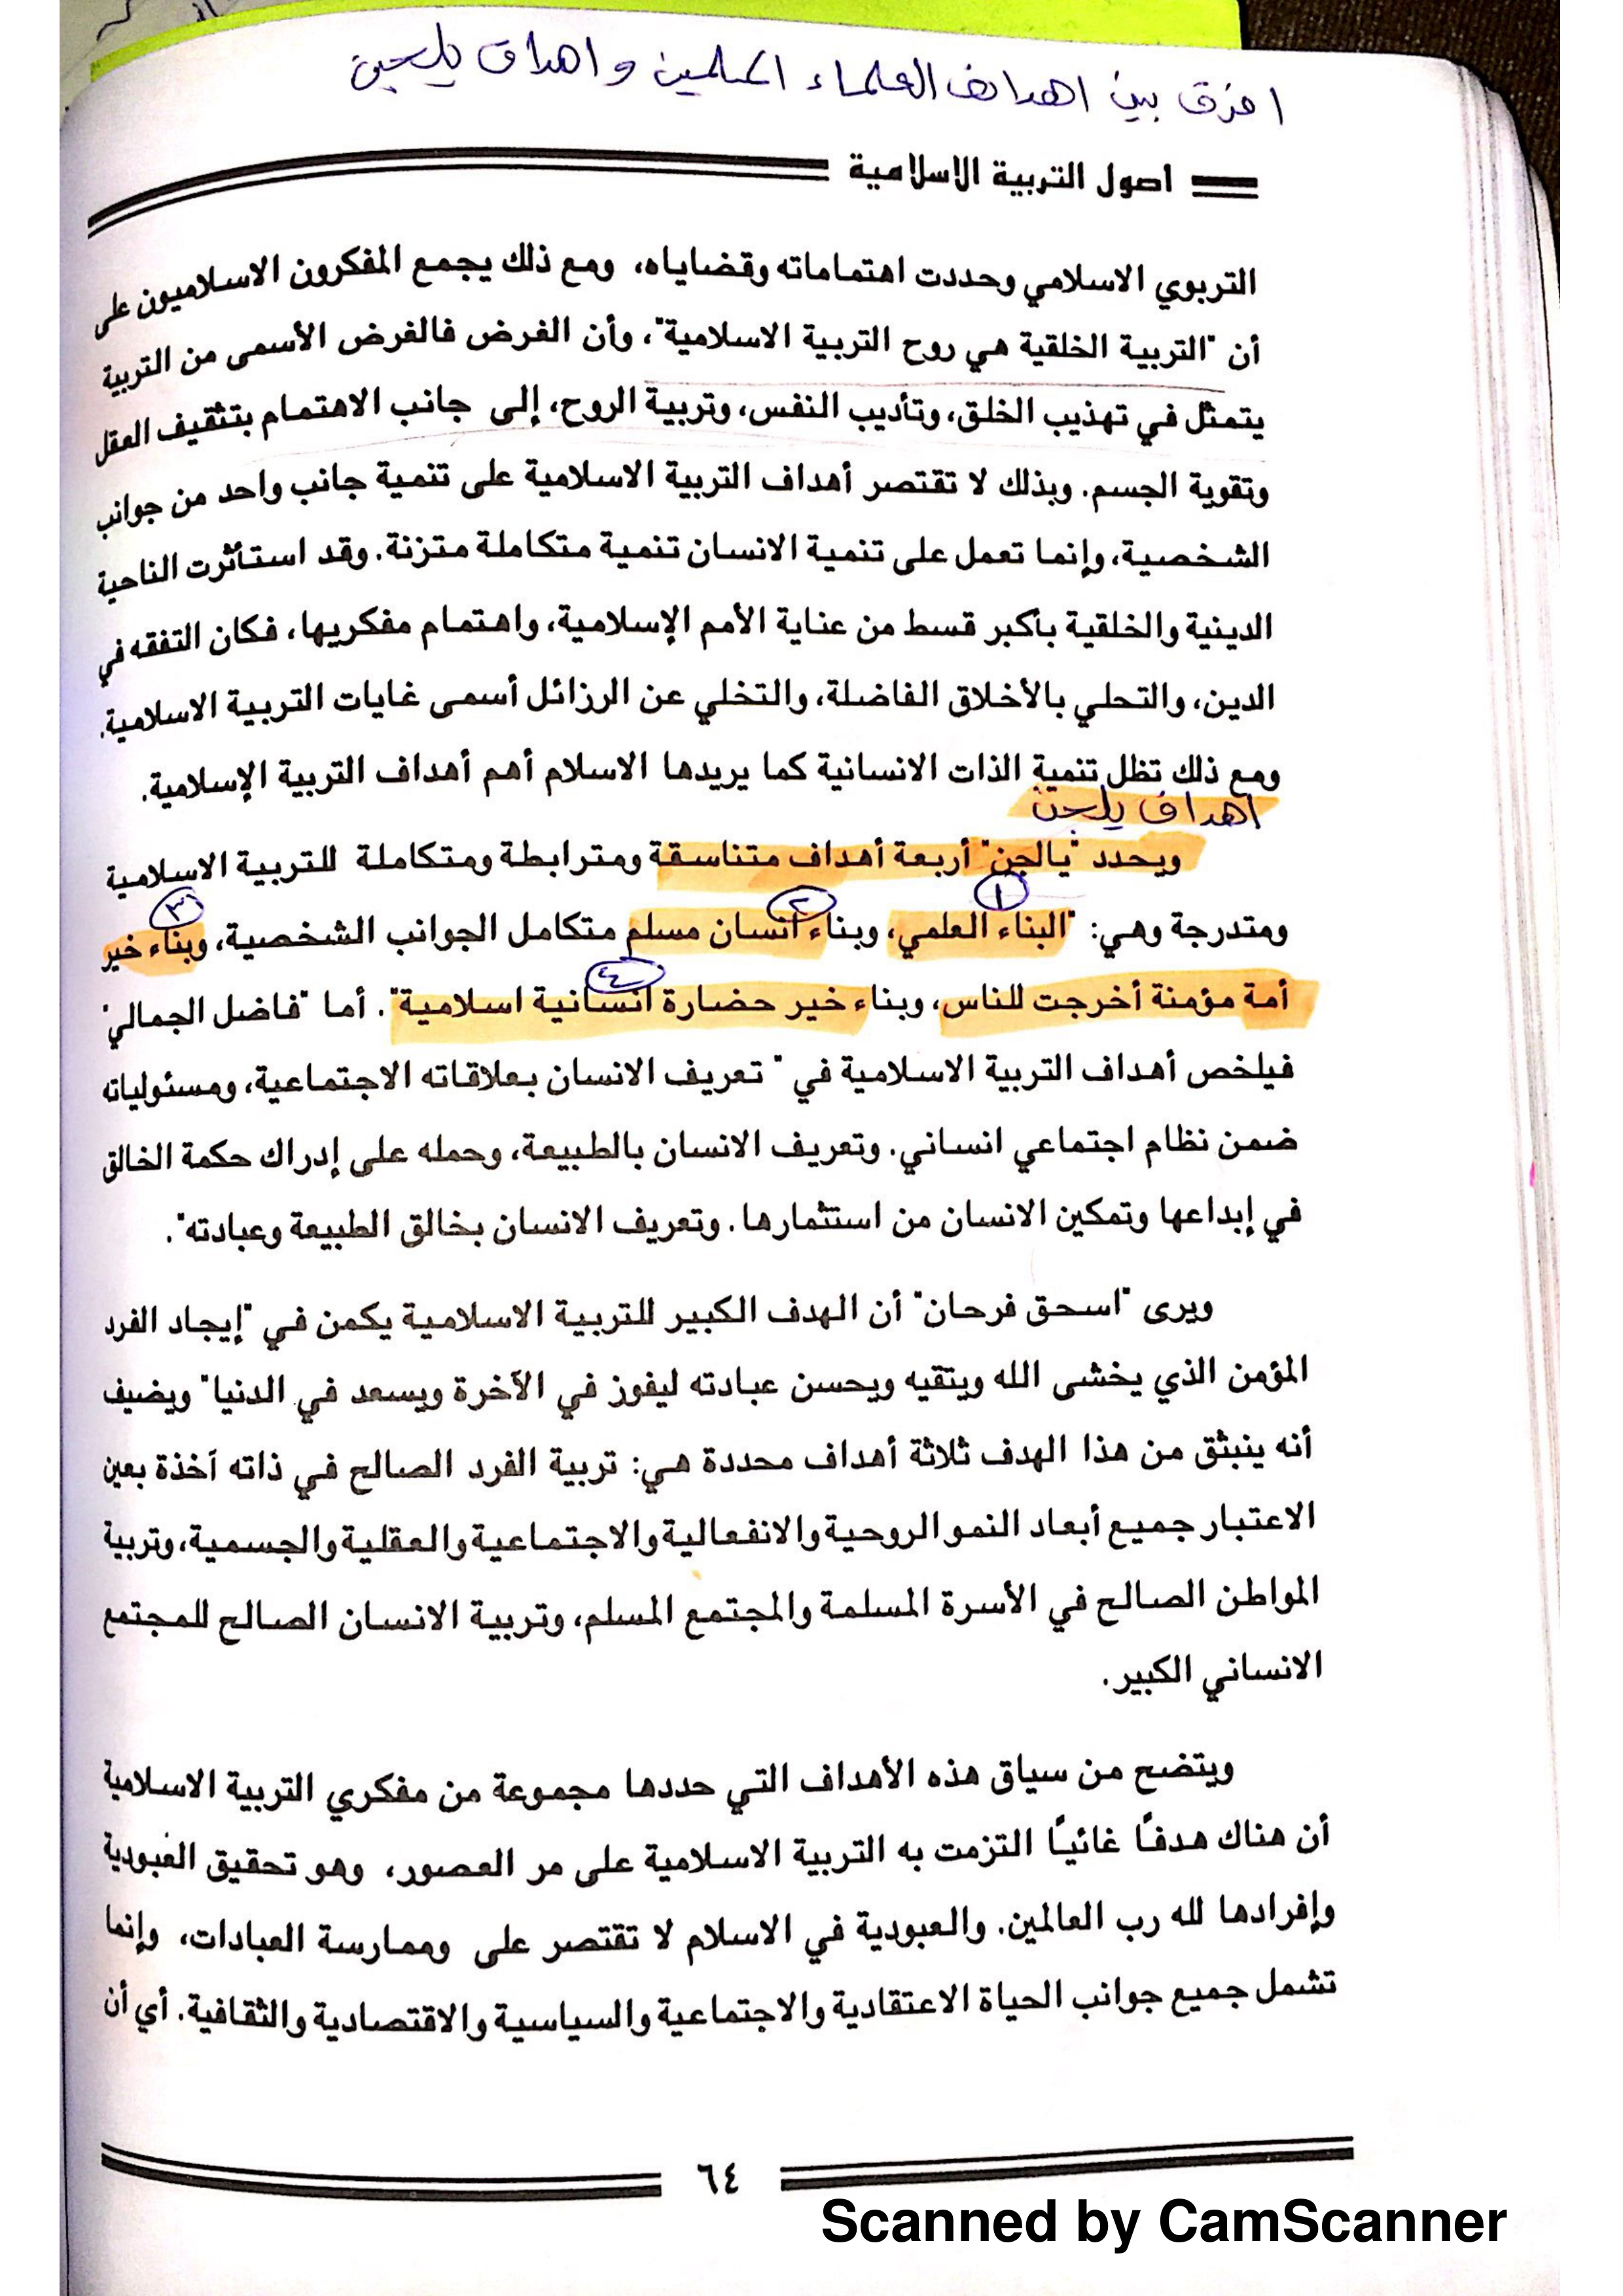 افرق بين اهداف العلماء المسلمين واهداف يلجن
اصول التربية الاسلامية
التربوي الاسلامي وحددت اهتماماته وقضاياه، ومع ذلك يجمع المفكرون الاسلاميون على
أن "التربية الخلقية هي روح التربية الاسلامية"، وأن الغرض فالغرض الأسمى من التربية
يتمثل في تهذيب الخلق، وتأديب النفس، وتربية الروح، إلى جانب الاهتمام بتثقيف العقل
وتقوية الجسم. وبذلك لا تقتصر أهداف التربية الاسلامية على تنمية جانب واحد من جوانب
الشخصية، وإنما تعمل على تنمية الانسان تنمية متكاملة متزنة. وقد استأثرت الناحية
الدينية والخلقية بأكبر قسط من عناية الأمم الإسلامية، واهتمام مفكريها، فكان التفقه في
الدين، والتحلي بالأخلاق الفاضلة، والتخلي عن الرزائل أسمى غايات التربية الاسلامية.
ومع ذلك تظل تنمية الذات الانسانية كما يريدها الاسلام أهم أهداف التربية الإسلامية.
اهداف يلجن
ويحدد "يالجن" أربعة أهداف متناسقة ومترابطة ومتكاملة للتربية الاسلامية
١ ٢ ٣
ومتدرجة وهي: "البناء العلمي، وبناء انسان مسلم متكامل الجوانب الشخصية، وبناء خير
٤
أمة مؤمنة أخرجت للناس، وبناء خير حضارة انسانية اسلامية". أما "فاضل الجمالي"
فيلخص أهداف التربية الاسلامية في " تعريف الانسان بعلاقاته الاجتماعية، ومسئولياته
ضمن نظام اجتماعي انساني. وتعريف الانسان بالطبيعة، وحمله على إدراك حكمة الخالق
في إبداعها وتمكين الانسان من استثمارها. وتعريف الانسان بخالق الطبيعة وعبادته".
ويرى "اسحق فرحان" أن الهدف الكبير للتربية الاسلامية يكمن في "إيجاد الفرد
المؤمن الذي يخشى الله ويتقيه ويحسن عبادته ليفوز في الآخرة ويسعد في الدنيا" ويضيف
أنه ينبثق من هذا الهدف ثلاثة أهداف محددة هي: تربية الفرد الصالح في ذاته آخذة بعين
الاعتبار جميع أبعاد النمو الروحية والانفعالية والاجتماعية والعقلية والجسمية، وتربية
المواطن الصالح في الأسرة المسلمة والمجتمع المسلم، وتربية الانسان الصالح للمجتمع
الانساني الكبير.
ويتضح من سياق هذه الأهداف التي حددها مجموعة من مفكري التربية الاسلامية
أن هناك هدفًا غائيًا التزمت به التربية الاسلامية على مر العصور، وهو تحقيق العبودية
وإفرادها لله رب العالمين. والعبودية في الاسلام لا تقتصر على وممارسة العبادات، وإنما
تشمل جميع جوانب الحياة الاعتقادية والاجتماعية والسياسية والاقتصادية والثقافية. أي أن
٦٤
Scanned by CamScanner